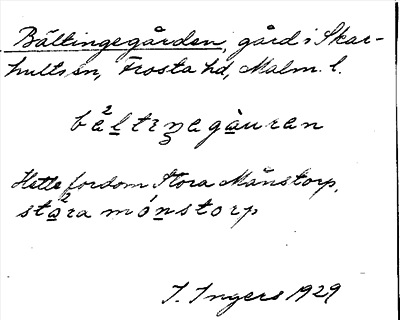 Bältingegården, gård i Skar-
hults sn, Frosta hd, Malm. l.
bä²ltiŋagàuran
Hette fordom Stora Månstorp,
stå²ra mónstorp
I. Ingers 1929